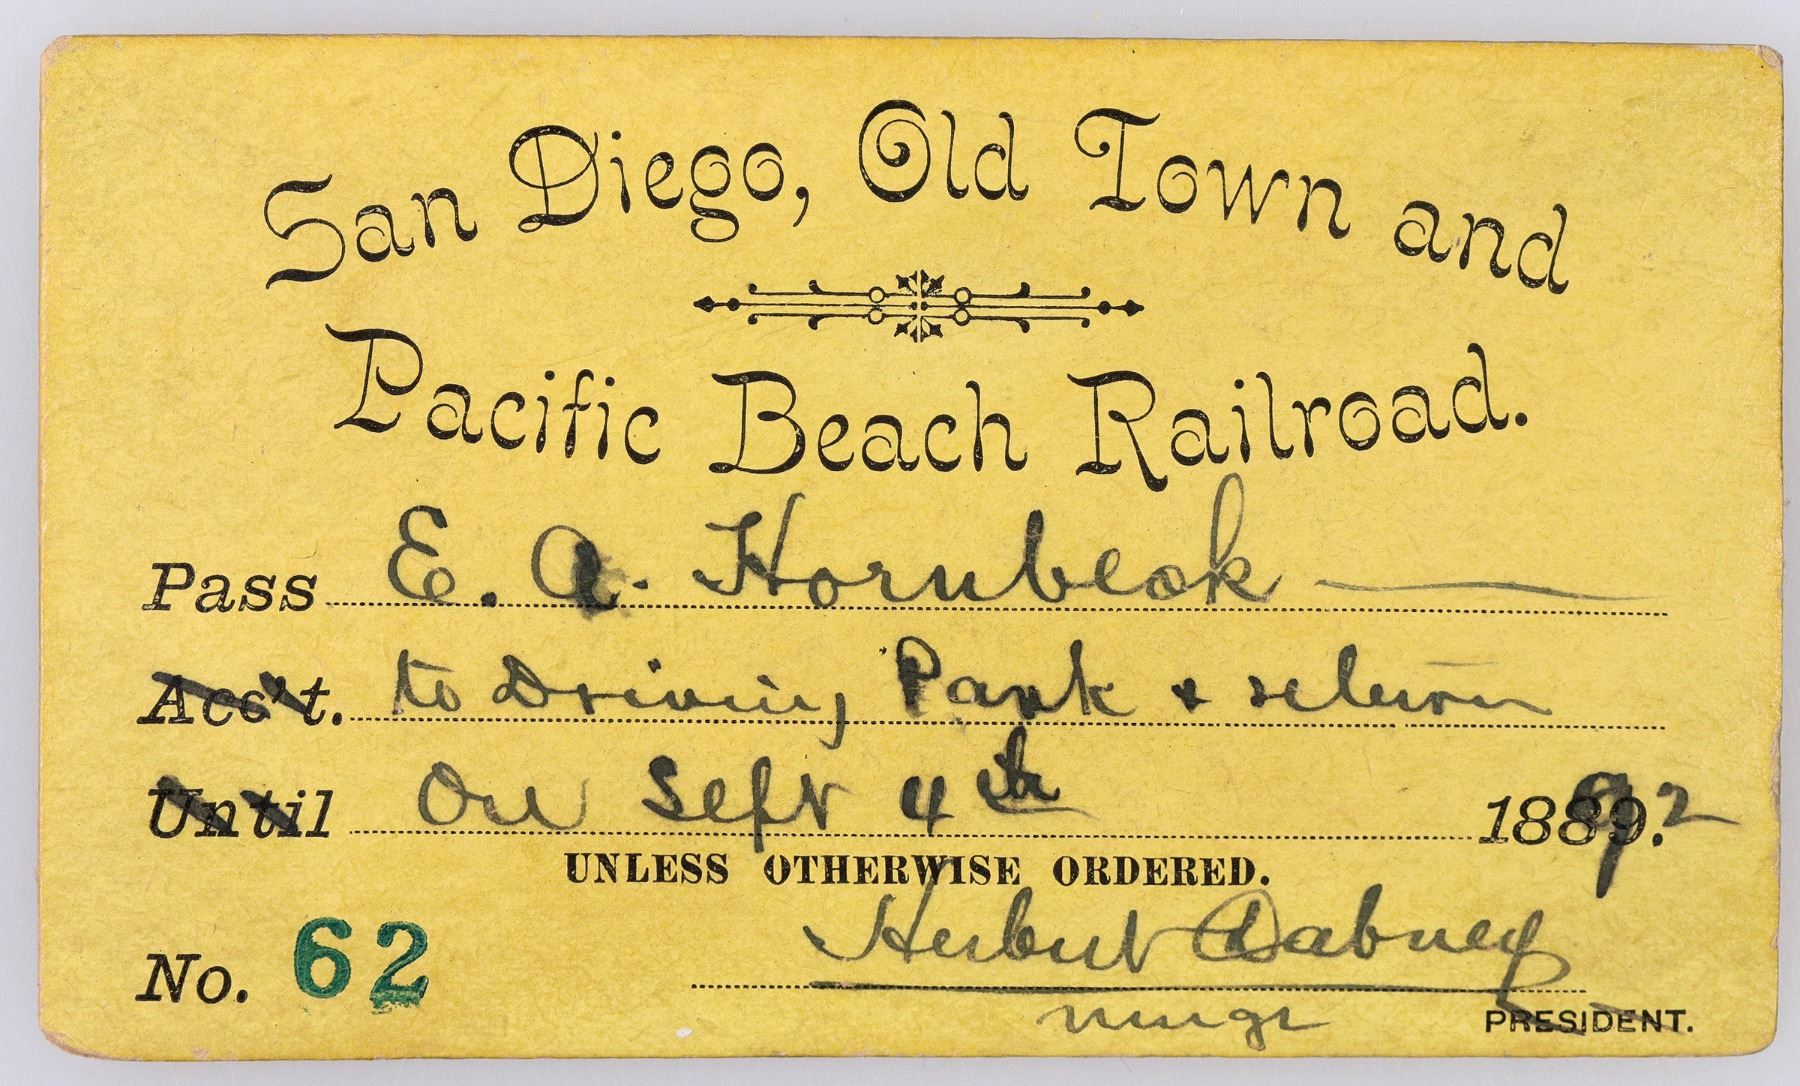 San Diego, Old Town and
Pacific Beach Railroad.
Pass E. A. Hornbeck
Acc't. to Driving Park & return
Until On Sept 4th 1889.92
UNLESS OTHERWISE ORDERED.
No. 62 Herbert Dabney
mngr PRESIDENT.